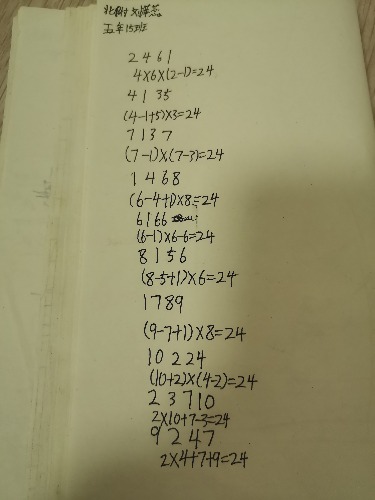 五年15班
2 4 6 1
4×6×(2-1)=24
4 1 3 5
(4-1+5)×3=24
7 1 3 7
(7-1)×(7-3)=24
1 4 6 8
(6-4+1)×8=24
6 1 6 6
(6-1)×6-6=24
8 1 5 6
(8-5+1)×6=24
1 7 8 9
(9-7+1)×8=24
10 2 2 4
(10+2)×(4-2)=24
2 3 7 10
2×10+7-3=24
9 2 4 7
2×4+7+9=24